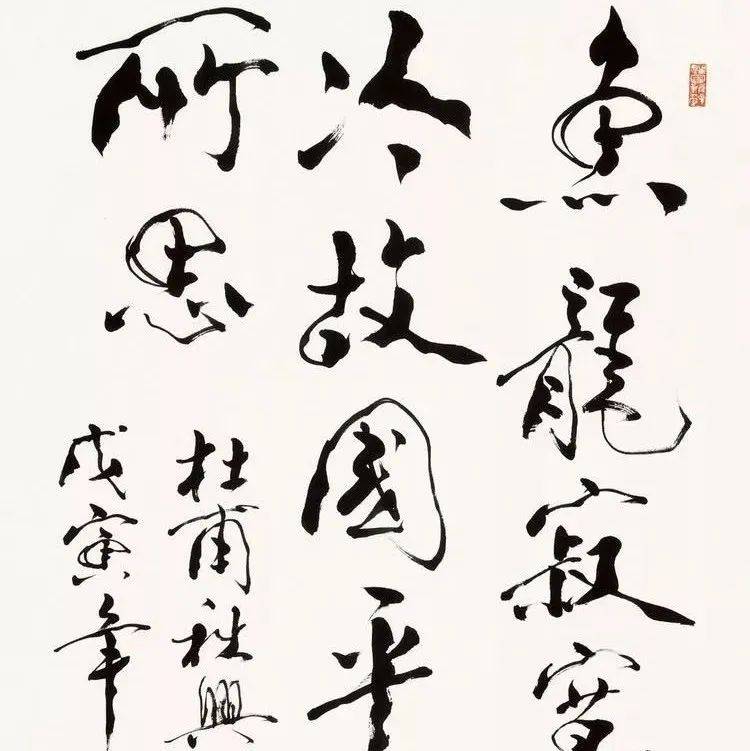 魚龍寂寞
冷故國平
所思
杜甫秋興
戊寅年